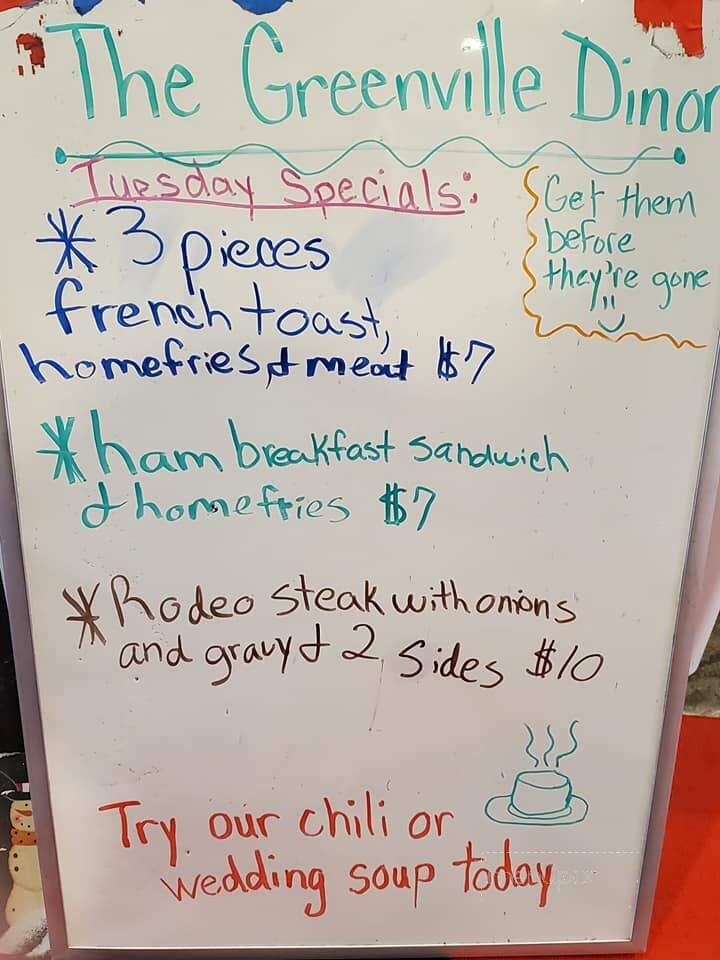 The Greenville Dinor
Tuesday Specials:
Get them
before
they're gone
* 3 pieces
french toast,
homefries, & meat $7
* ham breakfast sandwich
& homefries $7
* Rodeo steak with onions
and gravy & 2 sides $10
Try our chili or
wedding soup today